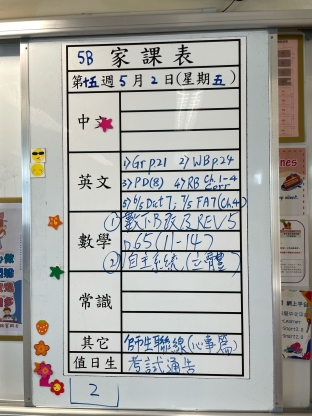 5B 家課表
第十五週 5月2日(星期五)
中文
英文
1) Gr p21 2) WB p.24
3) PD(8) 4) RB Ch.1-4
Corr
5) 6/5 Dict 7; 7/5 FA7 (Ch.4)
數學
① 數下B改及REV 5
p65 (1-14)
② 自主系統(立體)
常識
其它
師生聯線(心事篇)
考試通告
值日生
2